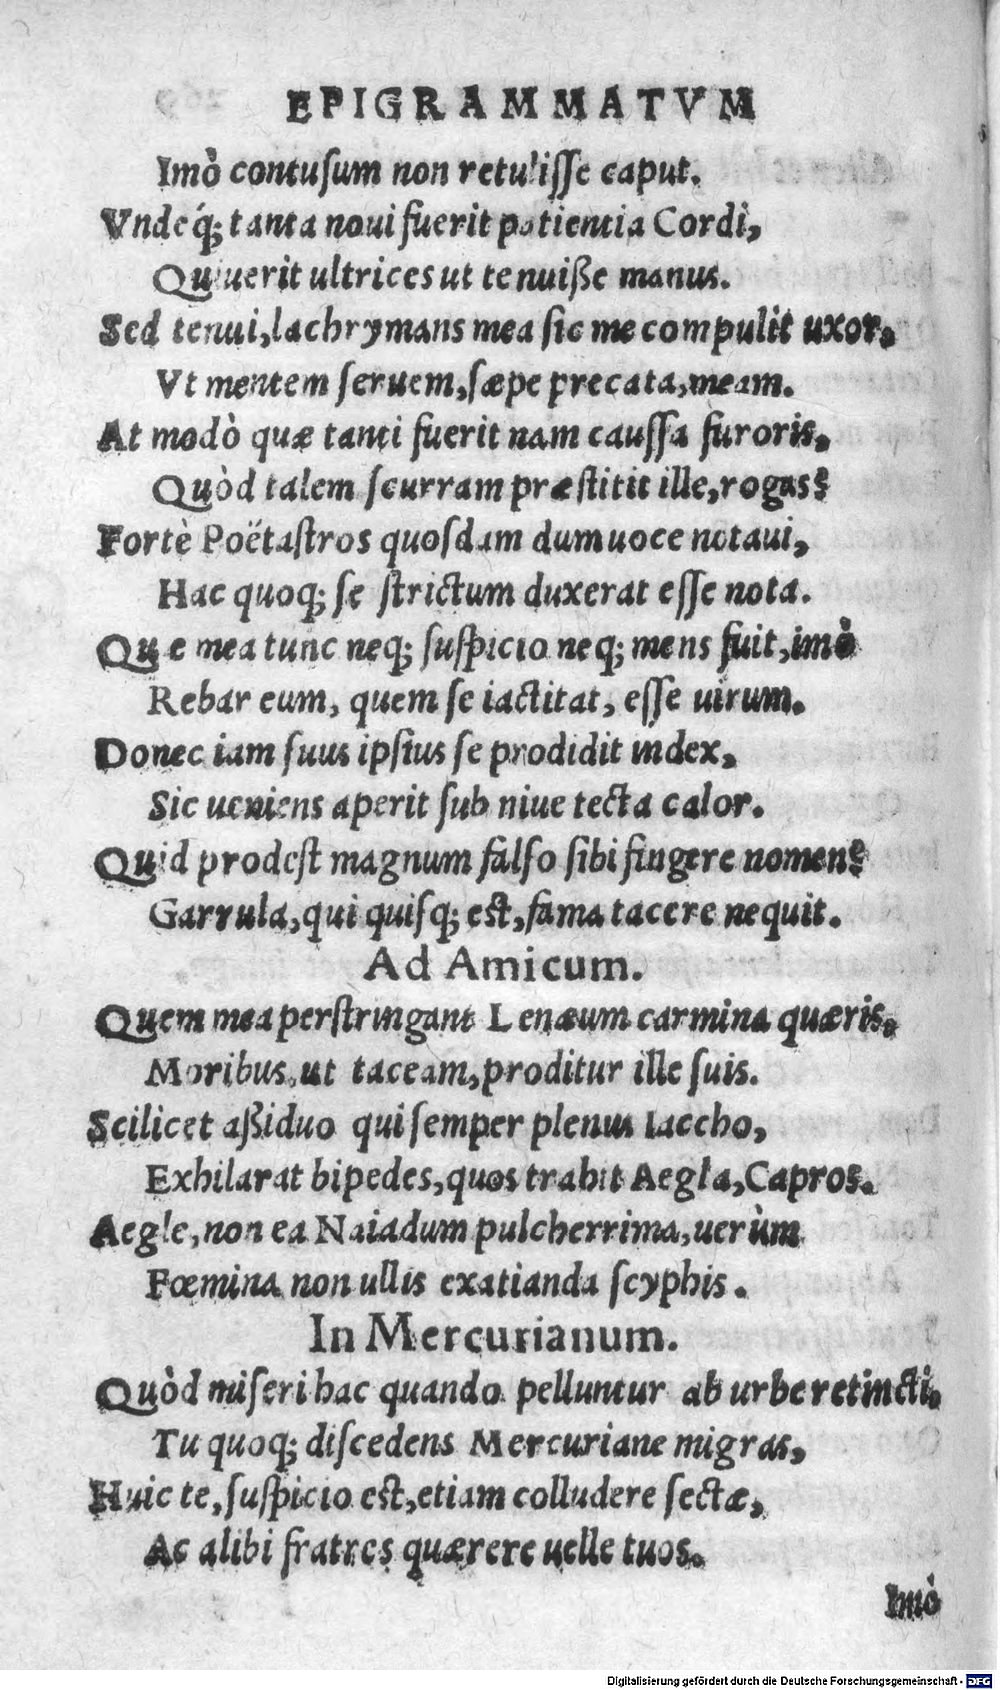 EPIGRAMMATVM
Imò contuſum non retuliſſe caput.
Vndeq́; tanta noui fuerit patientia Cordi,
Quiuerit ultrices ut tenuiße manus.
Sed tenui, lachrymans mea ſic me compulit uxor,
Vt mentem ſeruem, ſæpe precata, meam.
At modò quæ tanti fuerit nam cauſſa furoris,
Quòd talem ſcurram præſtitit ille, rogas?
Fortè Poëtaſtros quoſdam dum uoce notaui,
Hac quoq; ſe ſtrictum duxerat eſſe nota.
Que mea tunc neq; ſuſpicio neq; mens fuit, imò
Rebar eum, quem ſe iactitat, eſſe uirum.
Donec iam ſuus ipſius ſe prodidit index,
Sic ueniens aperit ſub niue tecta calor.
Quid prodeſt magnum falſo ſibi fingere nomen?
Garrula, qui quiſq; eſt, fama tacere nequit.
Ad Amicum.
Quem mea perſtringant Lenæum carmina quæris,
Moribus, ut taceam, proditur ille ſuis.
Scilicet aßiduo qui ſemper plenus Iaccho,
Exhilarat bipedes, quos trahit Aegla, Capros.
Aegle, non ea Naiadum pulcherrima, uerùm
Fœmina non ullis exatianda ſcyphis.
In Mercurianum.
Quòd miſeri hac quando pelluntur ab urbe retincti,
Tu quoq; diſcedens Mercuriane migras,
Huic te, ſuſpicio eſt, etiam colludere ſectæ,
Ac alibi fratres quærere uelle tuos.
Imò
Digitalisierung gefördert durch die Deutsche Forschungsgemeinschaft - DFG